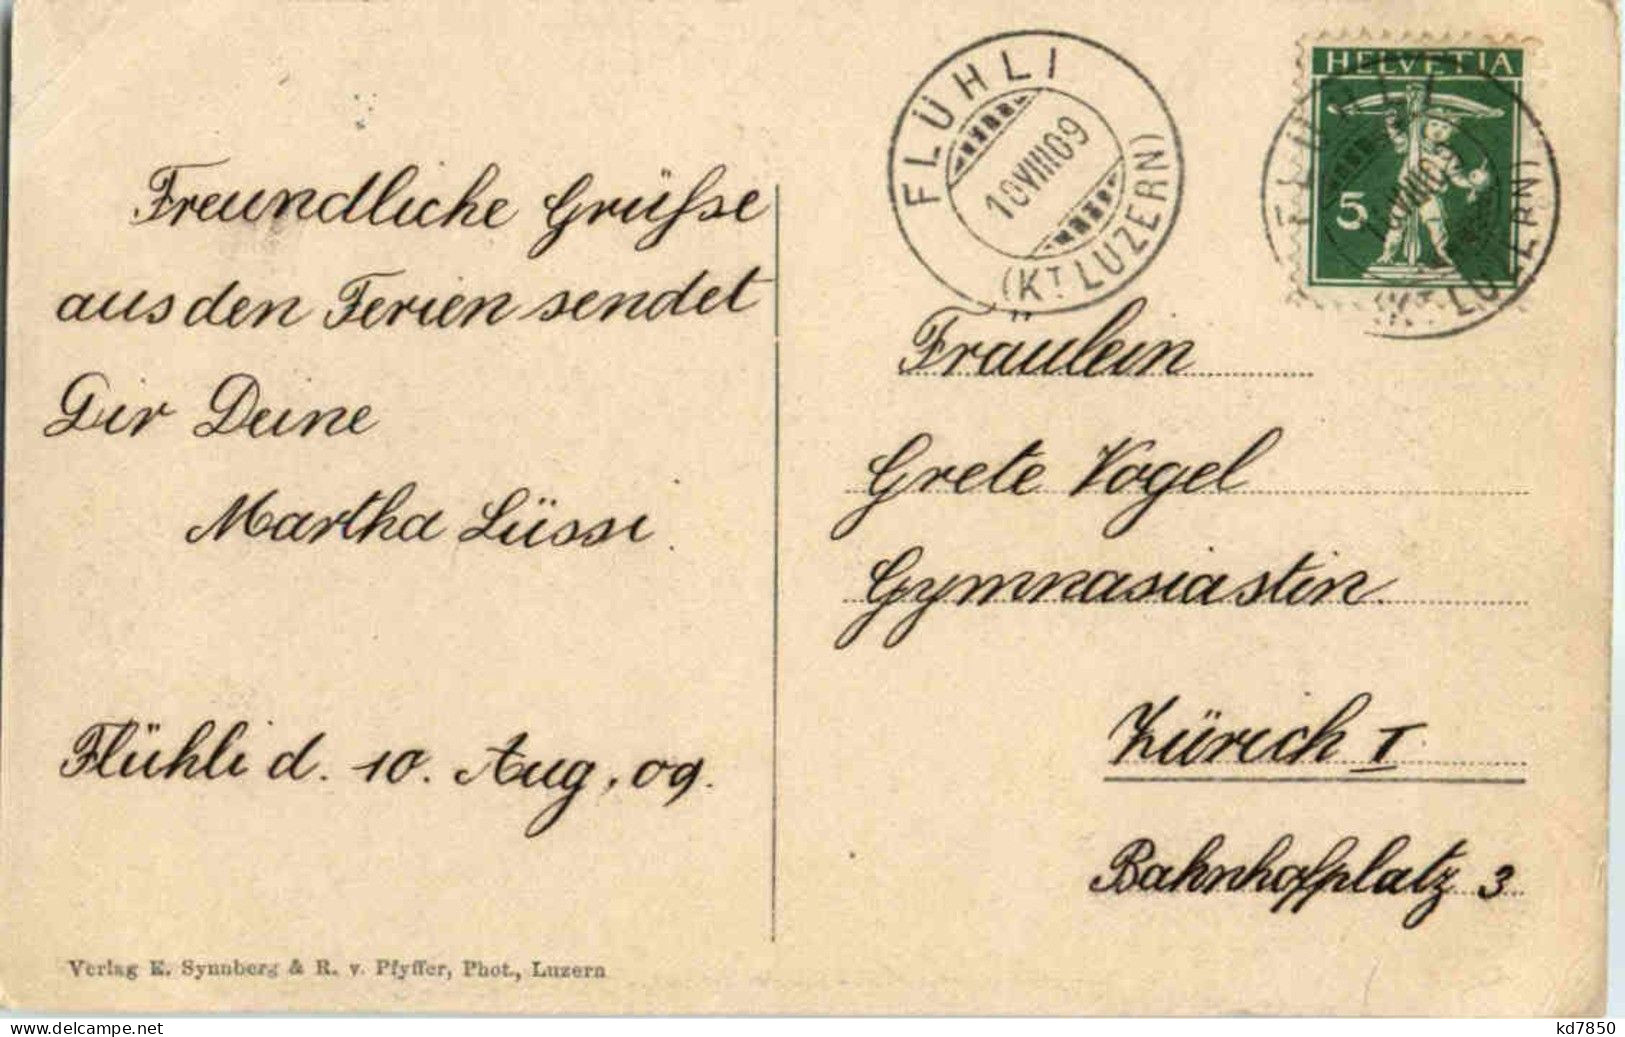 Freundliche Grüsse
aus den Ferien sendet
Dir Deine
Martha Lüssi.
Flühli d. 10. Aug. 09.
Verlag E. Synnberg & R. v. Pfyffer, Phot., Luzern
FLÜHLI
10 VIII 09
(KT LUZERN)
HELVETIA
5
FLÜHLI
10 VIII 09
(KT LUZERN)
Fräulein
Grete Vogel
Gymnasiastin.
Zürich I.
Bahnhofplatz 3
kd7850